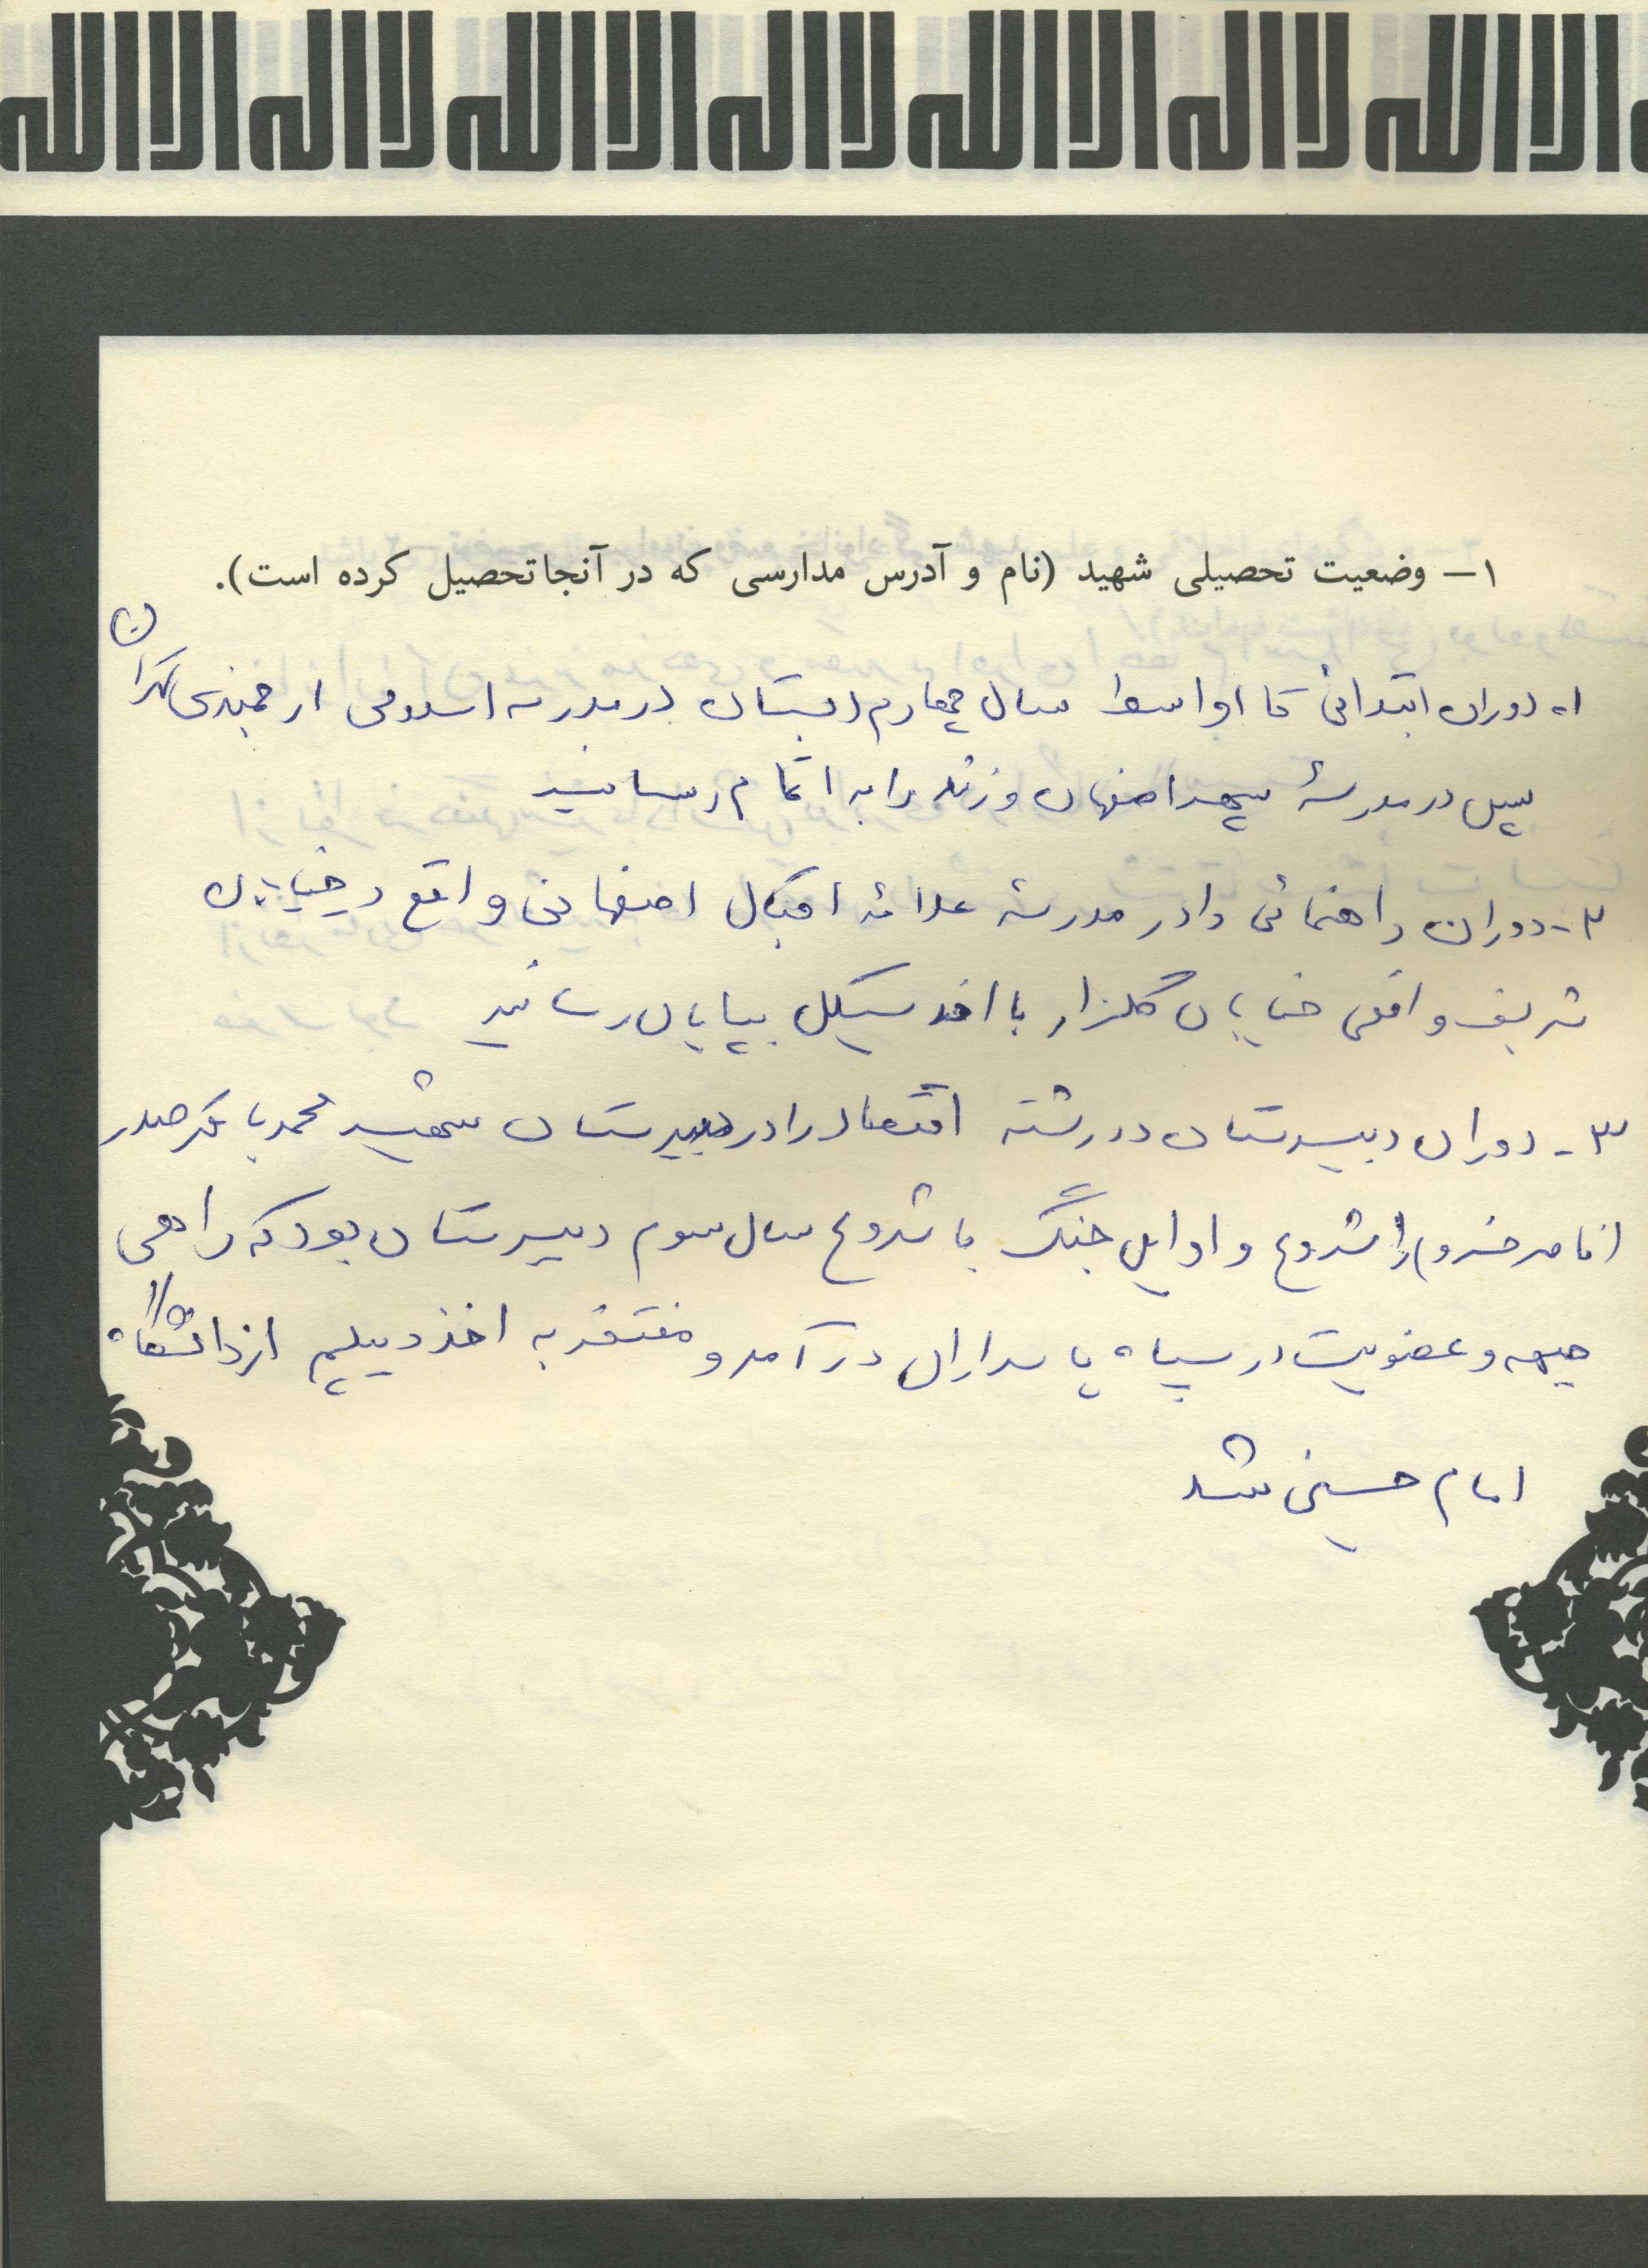 لا اله الا الله لا اله الا الله لا اله الا الله
۱– وضعیت تحصیلی شهید (نام و آدرس مدارسی که در آنجا تحصیل کرده است).
۱- دوران ابتدائی تا اواسط سال چهارم دبستان در مدرسه اسلامی ارجمندی تهران
سپس در مدرسهٔ سپهر اصفهان و زند را به اتمام رسانید
۲- دوران راهنمائی را در مدرسه علامه اقبال اصفهانی واقع در خیابان
شریف واقفی خیابان گلزار با اخذ سیکل بپایان رسانید
۳- دوران دبیرستان در رشته اقتصاد را در دبیرستان شهید محمد باقر صدر
(ناصر خسرو) را شروع و اوایل جنگ با شروع سال سوم دبیرستان بود که راهی
جبهه و عضویت در سپاه پاسداران درآمد و مفتخر به اخذ دیپلم از دانشگاه
امام حسین شد